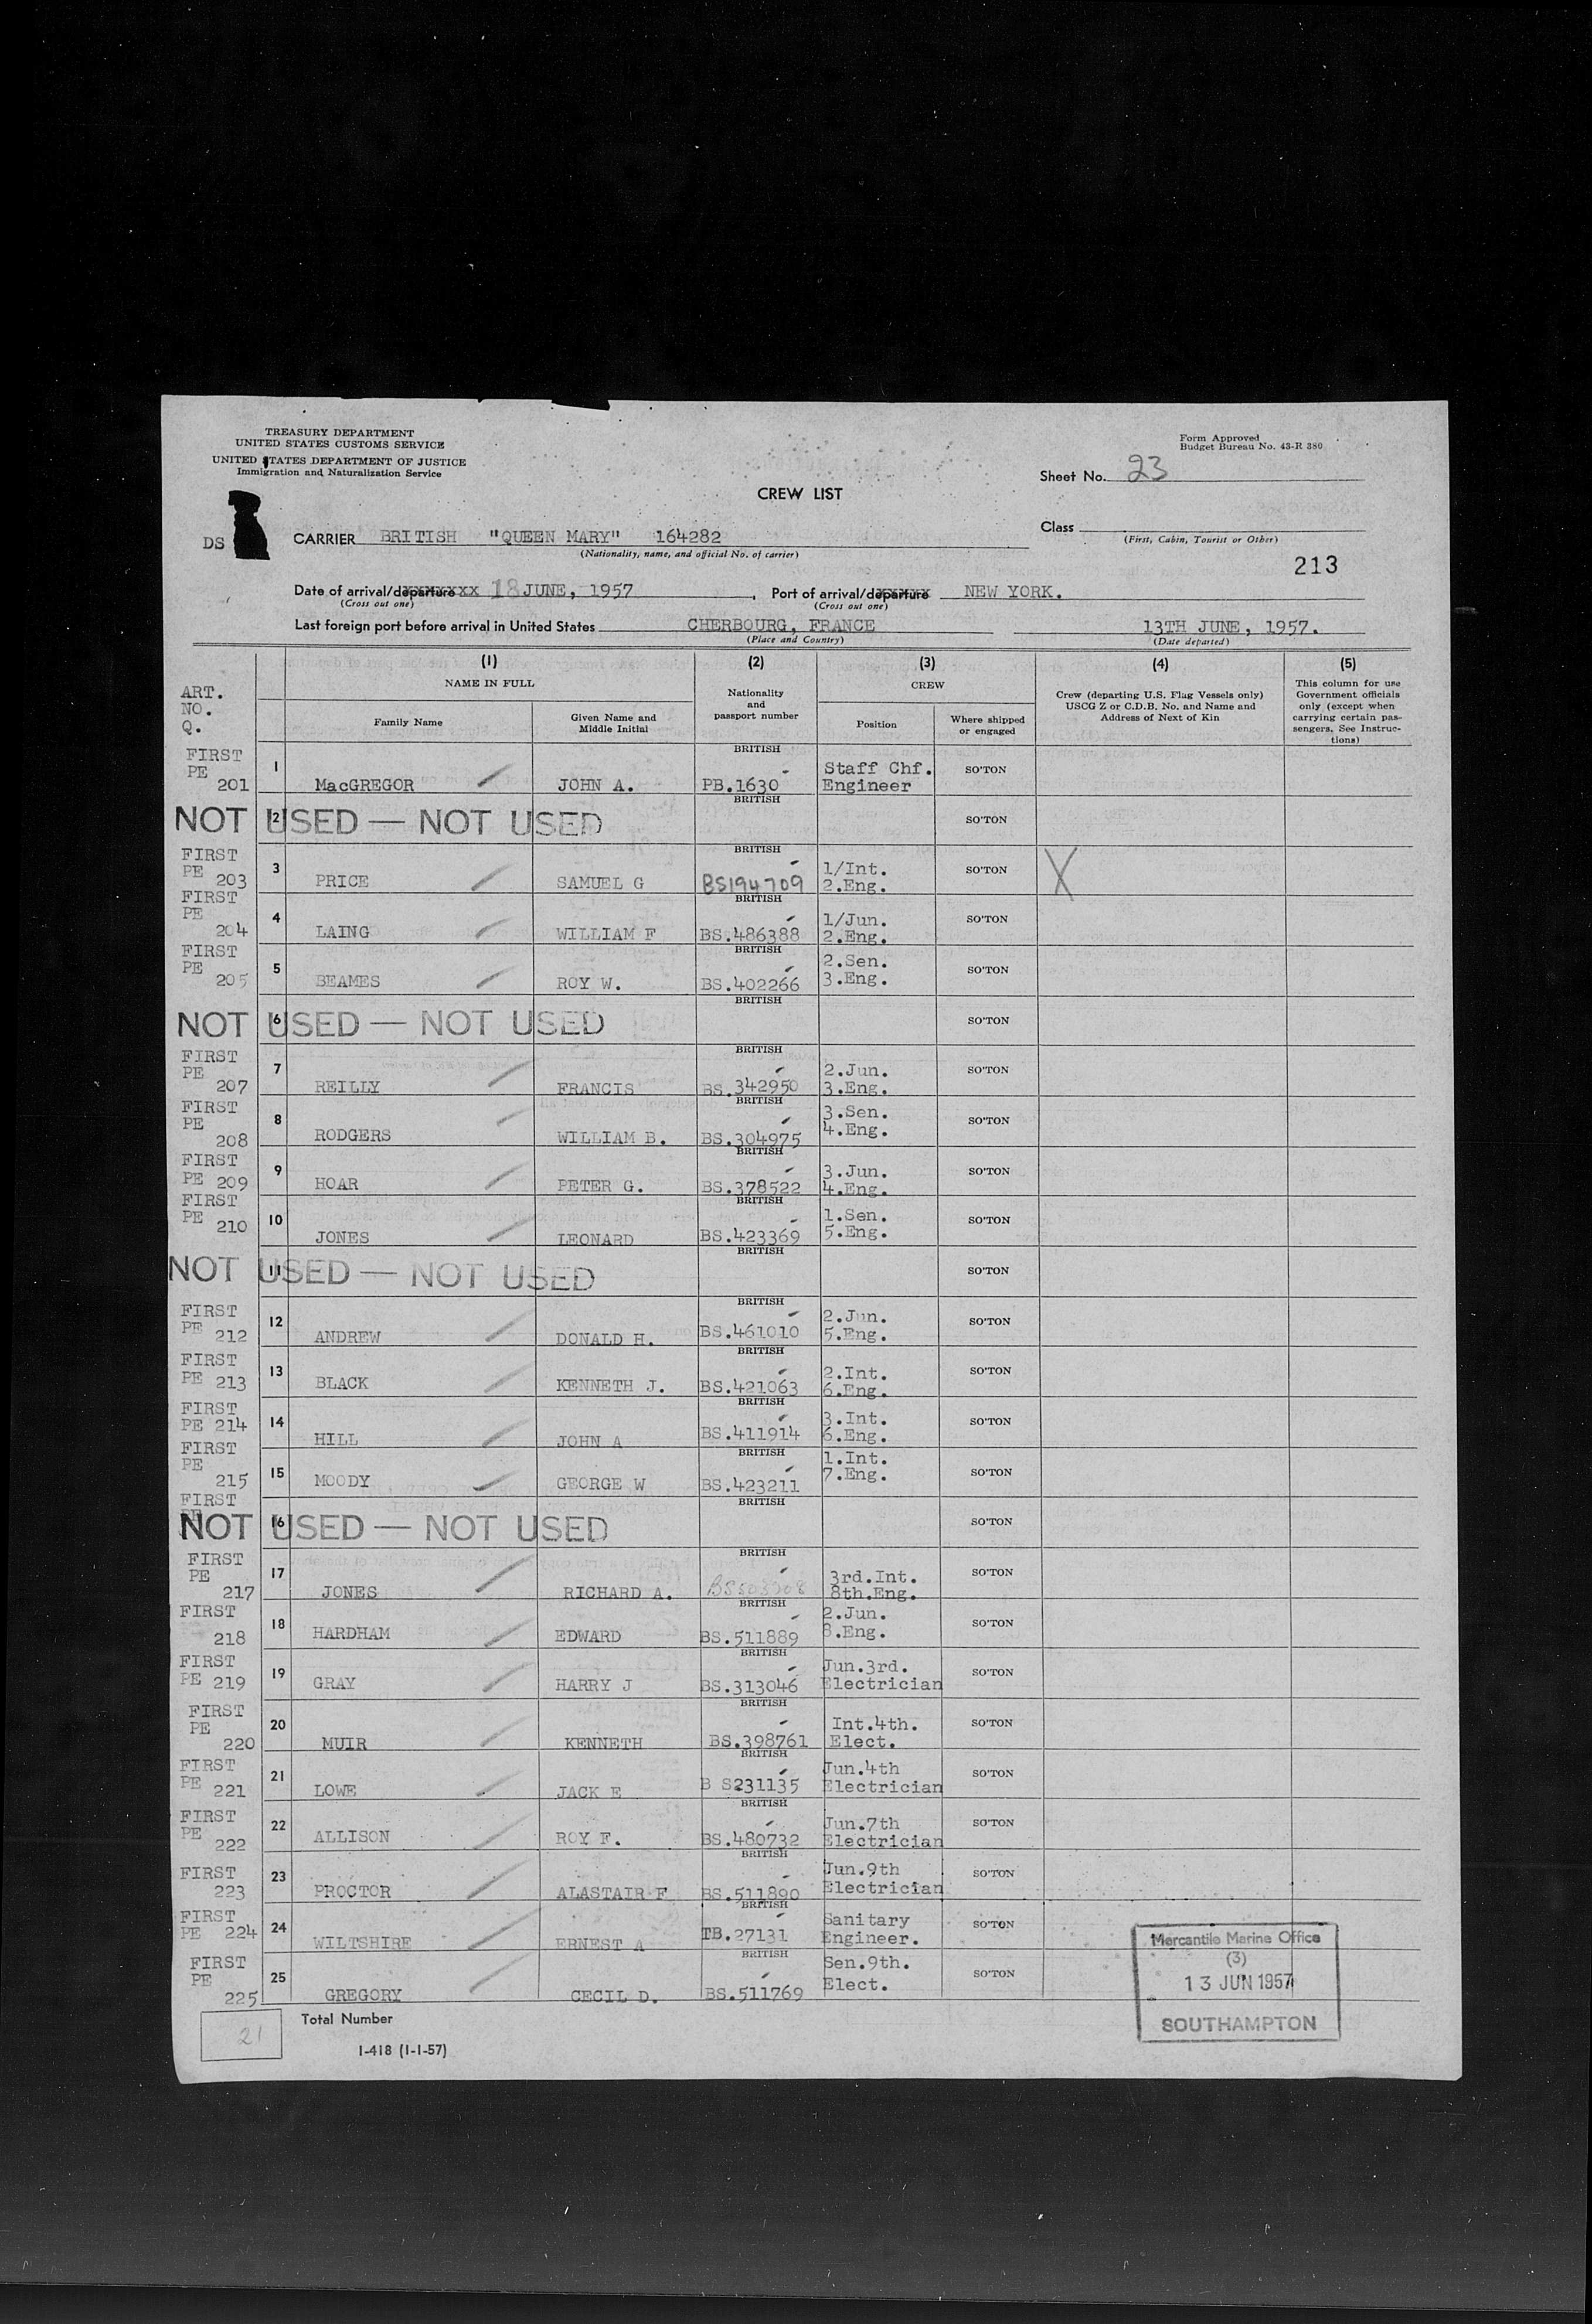 TREASURY DEPARTMENT
UNITED STATES CUSTOMS SERVICE
UNITED STATES DEPARTMENT OF JUSTICE
Immigration and Naturalization Service
Form Approved
Budget Bureau No. 43-R 380
Sheet No. 23
CREW LIST
Class
(First, Cabin, Tourist or Other)
DS
CARRIER BRITISH "QUEEN MARY" 164282
(Nationality, name, and official No. of carrier)
213
Date of arrival/departure xx 18 JUNE, 1957, Port of arrival/departure NEW YORK.
(Cross out one) (Cross out one)
Last foreign port before arrival in United States CHERBOURG, FRANCE 13TH JUNE, 1957.
(Place and Country) (Date departed)
ART. NO. Q.
(1) (2) (3) (4) (5)
NAME IN FULL
Family Name
Given Name and Middle Initial
Nationality and passport number
CREW
Position
Where shipped or engaged
Crew (departing U.S. Flag Vessels only) USCG Z or C.D.B. No. and Name and Address of Next of Kin
This column for use Government officials only (except when carrying certain passengers. See Instructions)
FIRST PE 201 1 MacGREGOR JOHN A. BRITISH PB.1630 Staff Chf. Engineer SO'TON
NOT USED — NOT USED 2 BRITISH SO'TON
FIRST PE 203 3 PRICE SAMUEL G BRITISH BS194709 1/Int. 2.Eng. SO'TON X
FIRST PE 204 4 LAING WILLIAM F BRITISH BS.486388 1/Jun. 2.Eng. SO'TON
FIRST PE 205 5 BEAMES ROY W. BRITISH BS.402266 2.Sen. 3.Eng. SO'TON
NOT USED — NOT USED 6 BRITISH SO'TON
FIRST PE 207 7 REILLY FRANCIS BRITISH BS.342950 2.Jun. 3.Eng. SO'TON
FIRST PE 208 8 RODGERS WILLIAM B. BRITISH BS.304975 3.Sen. 4.Eng. SO'TON
FIRST PE 209 9 HOAR PETER G. BRITISH BS.378522 3.Jun. 4.Eng. SO'TON
FIRST PE 210 10 JONES LEONARD BRITISH BS.423369 1.Sen. 5.Eng. SO'TON
NOT USED — NOT USED 11 BRITISH SO'TON
FIRST PE 212 12 ANDREW DONALD H. BRITISH BS.461010 2.Jun. 5.Eng. SO'TON
FIRST PE 213 13 BLACK KENNETH J. BRITISH BS.421063 2.Int. 6.Eng. SO'TON
FIRST PE 214 14 HILL JOHN A BRITISH BS.411914 3.Int. 6.Eng. SO'TON
FIRST PE 215 15 MOODY GEORGE W BRITISH BS.423211 1.Int. 7.Eng. SO'TON
FIRST PE NOT USED — NOT USED 16 BRITISH SO'TON
FIRST PE 217 17 JONES RICHARD A. BRITISH 3rd.Int. 8th.Eng. SO'TON
FIRST 218 18 HARDHAM EDWARD BRITISH BS.511889 2.Jun. 8.Eng. SO'TON
FIRST PE 219 19 GRAY HARRY J BRITISH BS.313046 Jun.3rd. Electrician SO'TON
FIRST PE 220 20 MUIR KENNETH BRITISH BS.398761 Int.4th. Elect. SO'TON
FIRST PE 221 21 LOWE JACK E BRITISH B S231135 Jun.4th Electrician SO'TON
FIRST PE 222 22 ALLISON ROY F. BRITISH BS.480732 Jun.7th Electrician SO'TON
FIRST 223 23 PROCTOR ALASTAIR F BRITISH BS.511890 Jun.9th Electrician SO'TON
FIRST PE 224 24 WILTSHIRE ERNEST A BRITISH TB.27131 Sanitary Engineer. SO'TON
FIRST PE 225 25 GREGORY CECIL D. BRITISH BS.511769 Sen.9th. Elect. SO'TON
Mercantile Marine Office
(3)
13 JUN 1957
SOUTHAMPTON
21 Total Number
I-418 (1-1-57)